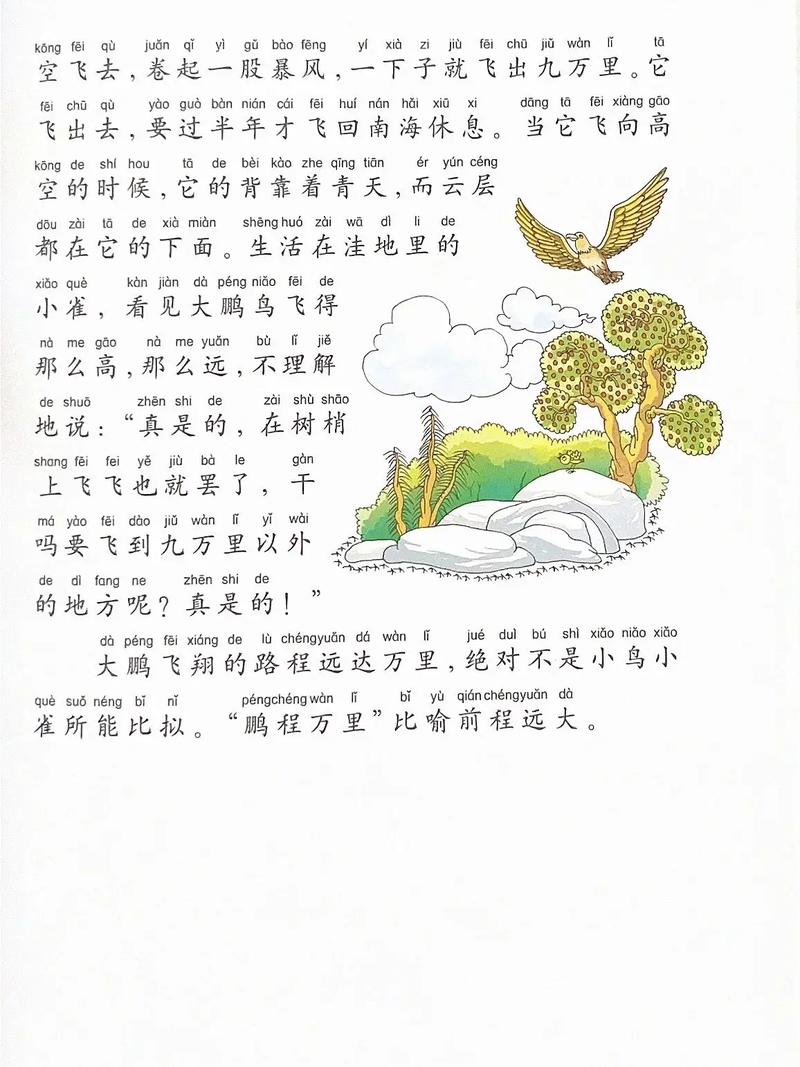 kōng fēi qù juǎn qǐ yì gǔ bào fēng yí xià zi jiù fēi chū jiǔ wàn lǐ tā
空飞去，卷起一股暴风，一下子就飞出九万里。它
fēi chū qù yào guò bàn nián cái fēi huí nán hǎi xiū xi dāng tā fēi xiàng gāo
飞出去，要过半年才飞回南海休息。当它飞向高
kōng de shí hou tā de bèi kào zhe qīng tiān ér yún céng
空的时候，它的背靠着青天，而云层
dōu zài tā de xià miàn shēng huó zài wā dì li de
都在它的下面。生活在洼地里的
xiǎo què kàn jiàn dà péng niǎo fēi de
小雀，看见大鹏鸟飞得
nà me gāo nà me yuǎn bù lǐ jiě
那么高，那么远，不理解
de shuō zhēn shi de zài shù shāo
地说：“真是的，在树梢
shang fēi fei yě jiù bà le gàn
上飞飞也就罢了，干
má yào fēi dào jiǔ wàn lǐ yǐ wài
吗要飞到九万里以外
de dì fang ne zhēn shi de
的地方呢？真是的！”
dà péng fēi xiáng de lù chéng yuǎn dá wàn lǐ jué duì bú shì xiǎo niǎo xiǎo
大鹏飞翔的路程远达万里，绝对不是小鸟小
què suǒ néng bǐ nǐ péng chéng wàn lǐ bǐ yù qián chéng yuǎn dà
雀所能比拟。“鹏程万里”比喻前程远大。